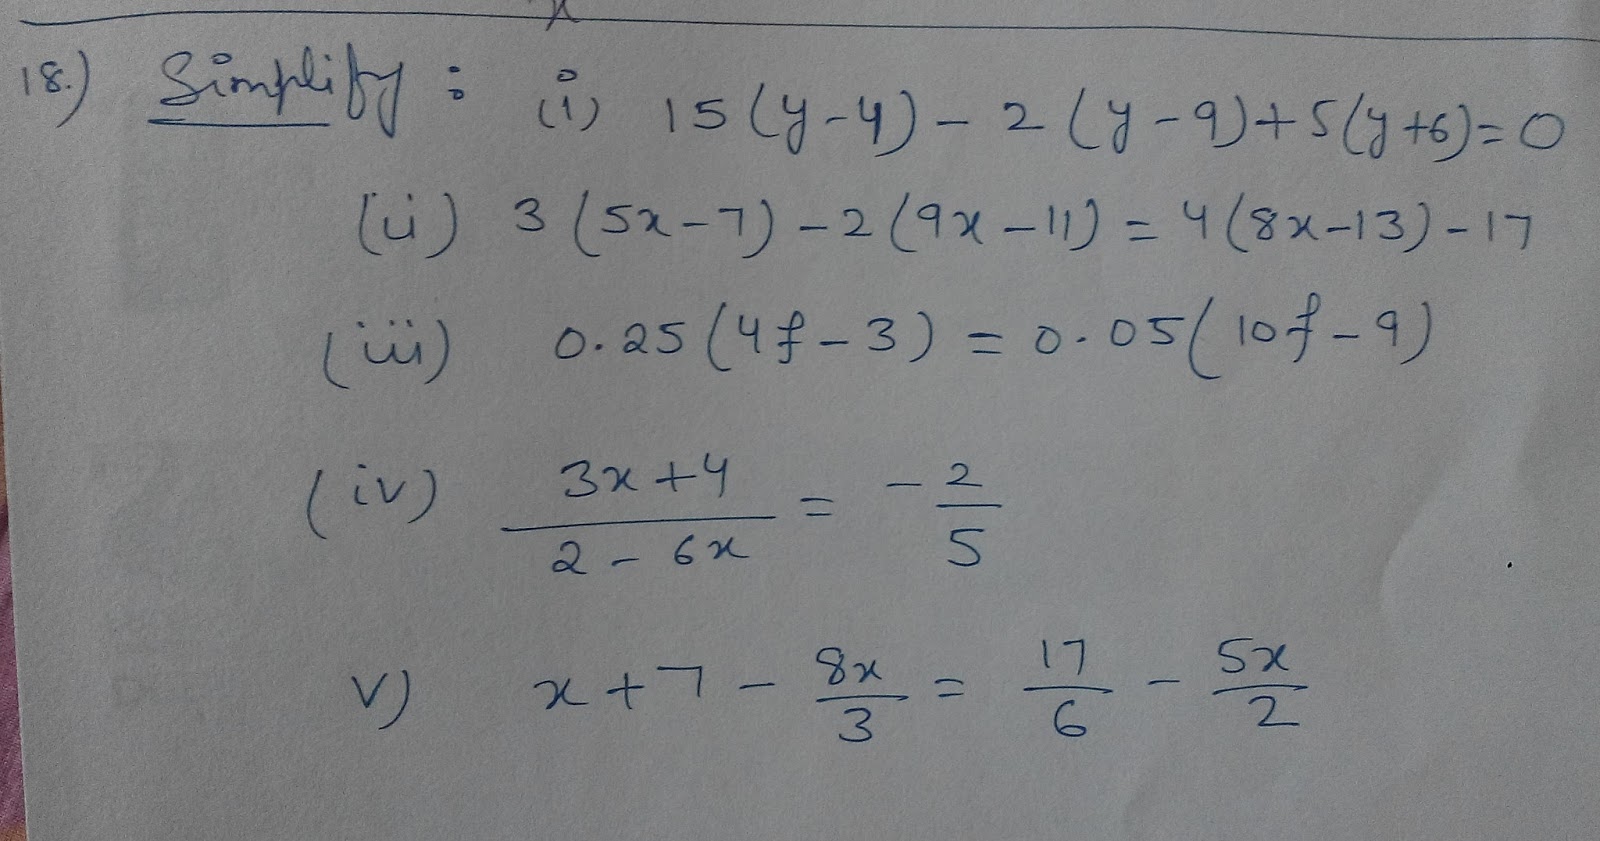 18.) Simplify : (i) 15(y-4) - 2(y-9)+5(y+6)=0
(ii) 3(5x-7)-2(9x-11)=4(8x-13)-17
(iii) 0.25(4f-3)=0.05(10f-9)
(iv) (3x+4)/(2-6x) = -2/5
v) x+7-8x/3 = 17/6 - 5x/2